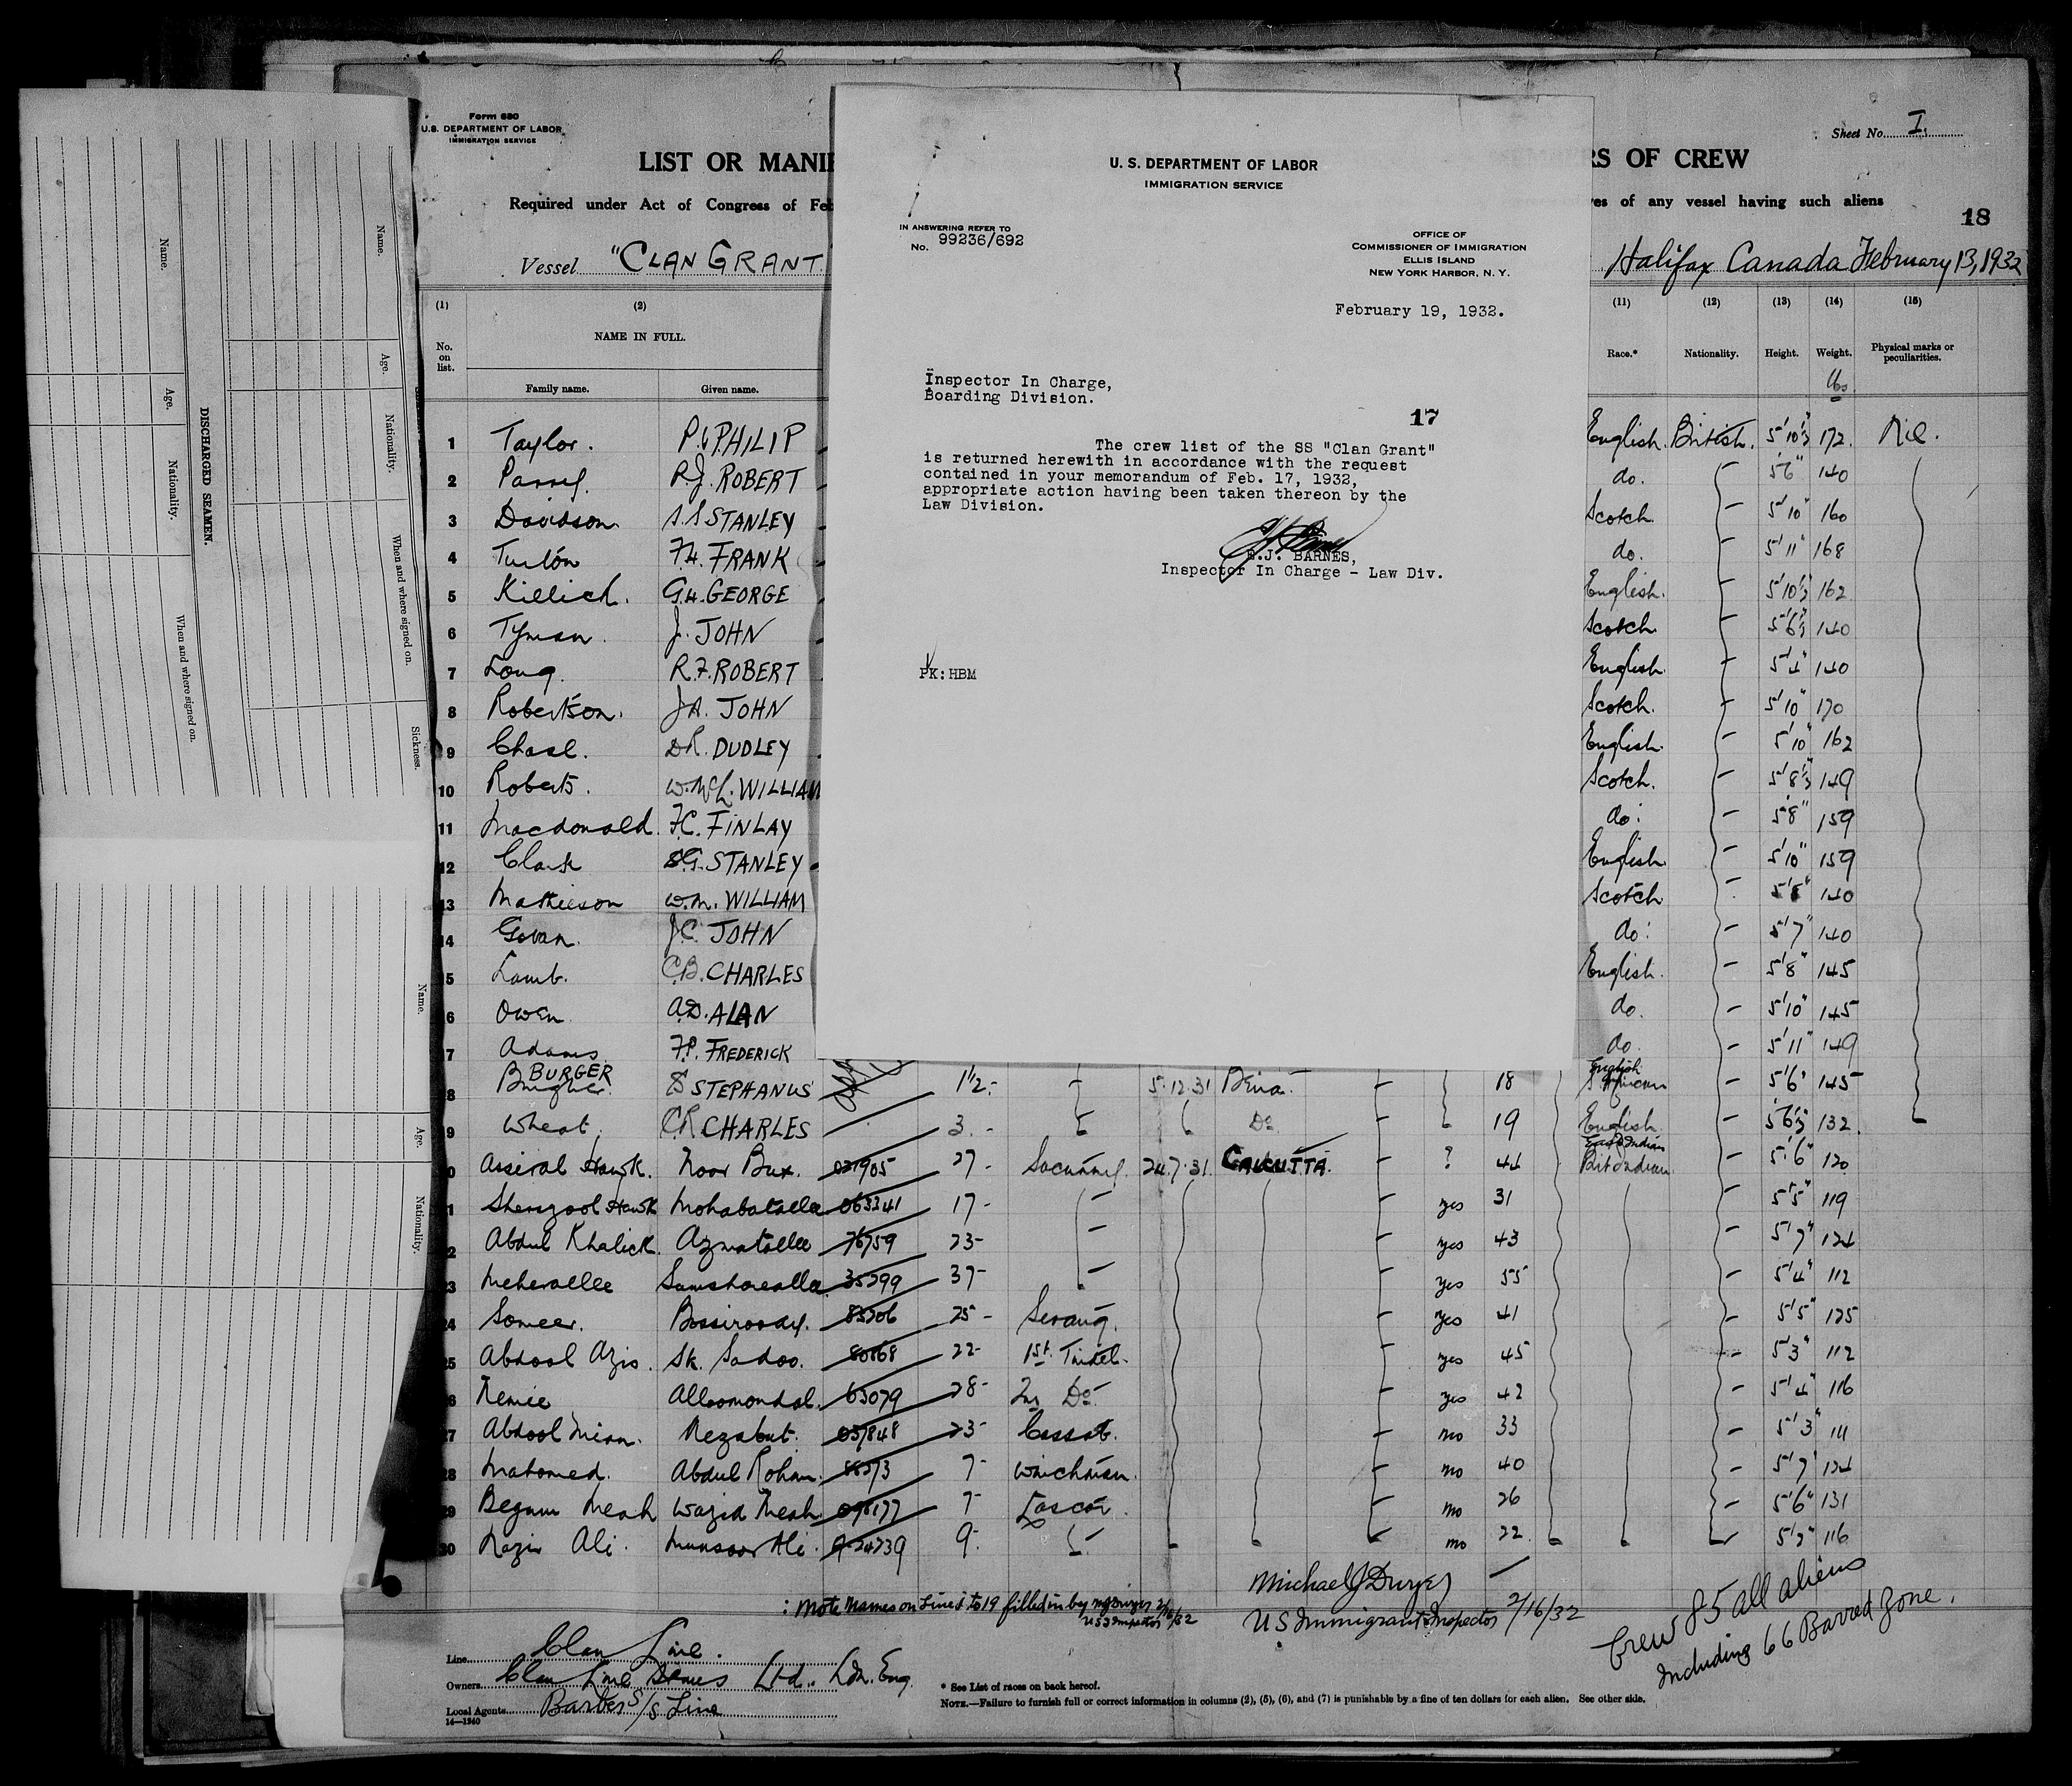 Form 680
U.S. DEPARTMENT OF LABOR
IMMIGRATION SERVICE
Sheet No. I.
LIST OR MANIF
RS OF CREW
Required under Act of Congress of Feb
res of any vessel having such aliens
18
Vessel "CLAN GRANT
Halifax Canada February 13, 1932
U. S. DEPARTMENT OF LABOR
IMMIGRATION SERVICE
IN ANSWERING REFER TO
No. 99236/692
OFFICE OF
COMMISSIONER OF IMMIGRATION
ELLIS ISLAND
NEW YORK HARBOR, N. Y.
February 19, 1932.
Inspector In Charge,
Boarding Division.
17
The crew list of the SS "Clan Grant"
is returned herewith in accordance with the request
contained in your memorandum of Feb. 17, 1932,
appropriate action having been taken thereon by the
Law Division.
E.J. BARNES,
Inspector In Charge - Law Div.
PK:HBM
DISCHARGED SEAMEN.
Name. Age. Nationality. When and where signed on.
Name. Age. Nationality. When and where signed on. Sickness.
Name. Age. Nationality.
(1) (2) (11) (12) (13) (14) (15)
No. on list. NAME IN FULL. Race.* Nationality. Height. Weight. Physical marks or peculiarities.
Family name. Given name. lbs
1 Taylor. P. PHILIP English. British. 5'10½ 172. Nil.
2 R.J. ROBERT do. 5'6" 140
3 Davidson S.S STANLEY Scotch. 5'10" 160
4 F.H. FRANK do. 5'11" 168
5 Killick. G.H. GEORGE English. 5'10½ 162
6 Tyman. J. JOHN Scotch 5'6½ 140
7 Long. R.F. ROBERT English 5'4" 140
8 Robertson. J.A. JOHN Scotch. 5'10" 170
9 Chasl. D.R. DUDLEY English. 5'10" 162
10 Roberts. W.McL. WILLIAM Scotch. 5'8½ 149
11 Macdonald. F.C. FINLAY do. 5'8" 159
12 Clark S.G. STANLEY English 5'10" 159
13 Mathieson W.M. WILLIAM Scotch 140
14 Govan. J.C. JOHN do. 5'7" 140
5 Lamb. C.B. CHARLES English. 5'8" 145
6 Owen A.D. ALAN do. 5'10" 145
7 Adams F.P. FREDERICK do. 5'11" 149
8 BURGER S STEPHANUS 1½ - 5.12.31 - 18 English 5'6" 145
9 Wheat. C.R. CHARLES 3. - Do - 19 English. 5'6½ 132.
0 Asseral Hawk. Noor Bux. 021905 27 - 24.7.31 CALCUTTA. - ? 44 East Indian Brit Indian 5'6" 120
1 Sherazool Hawk Mohabatalla 063341 17 - yes 31 5'5" 119
2 Abdul Khalick. Azmatallee 76759 23 - yes 43 5'7" 124
3 Meherallee Samsharealla 35799 37 - yes 55 5'4" 112
24 Someer. Bossiroody. 85706 25 - Serang. yes 41 5'5" 125
25 Abdool Azis. Sk. Sadoo. 80868 22 1st Tindel. yes 45 5'3" 112
6 Allomondal. 63079 28 - 2nd Do - yes 42 5'4" 116
27 Abdool Mian. Nezabut. 037848 23 - Cassab. no 33 5'3" 111
28 Mahomed. Abdul Rohan. 7 - Winchman. no 40 5'7" 124
29 Begum Meah Wazid Meah 098177 7 - Lascar no 26 5'6" 131
30 Nazir Ali. Munsoor Ali. 9. no 22 116
: Note Names on Lines 1 to 19 filled in by MJ Dwyer 2/16/32
US Inspector
Michael J Dwyer
US Immigrant Inspector 2/16/32
Crew 85 all aliens
Including 66 Barred Zone.
Line Clan Line.
Owners Clan Line Ltd. Ldn. Eng.
Local Agents Barber S/S Line
14—1240
* See List of races on back hereof.
NOTE.—Failure to furnish full or correct information in columns (2), (5), (6), and (7) is punishable by a fine of ten dollars for each alien. See other side.